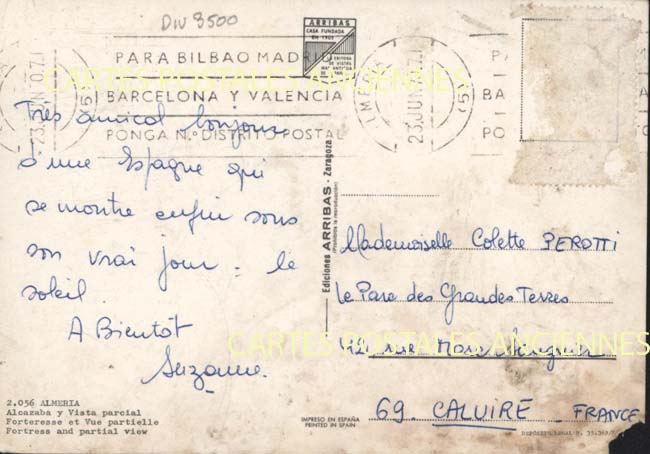 DIV 3500
ARRIBAS
CASA FUNDADA
EN 1905
PARA BILBAO MADRID
BARCELONA Y VALENCIA
PONGA N.º DISTRITO POSTAL
23 JUN 71
(5)
23 JUN 71
(5)
CARTES POSTALES ANCIENNES
Très amical bonjour
d'une Espagne qui
se montre enfin sous
son vrai jour : le
soleil.
A Bientôt
Suzanne.
Ediciones ARRIBAS - Zaragoza
Mademoiselle Colette PEROTTI
Le Parc des Grandes Terres
42 rue
69. CALUIRE - FRANCE
CARTES POSTALES ANCIENNES
2.056 ALMERIA
Alcazaba y Vista parcial
Forteresse et Vue partielle
Fortress and partial view
IMPRESO EN ESPAÑA
PRINTED IN SPAIN
DEPÓSITO LEGAL